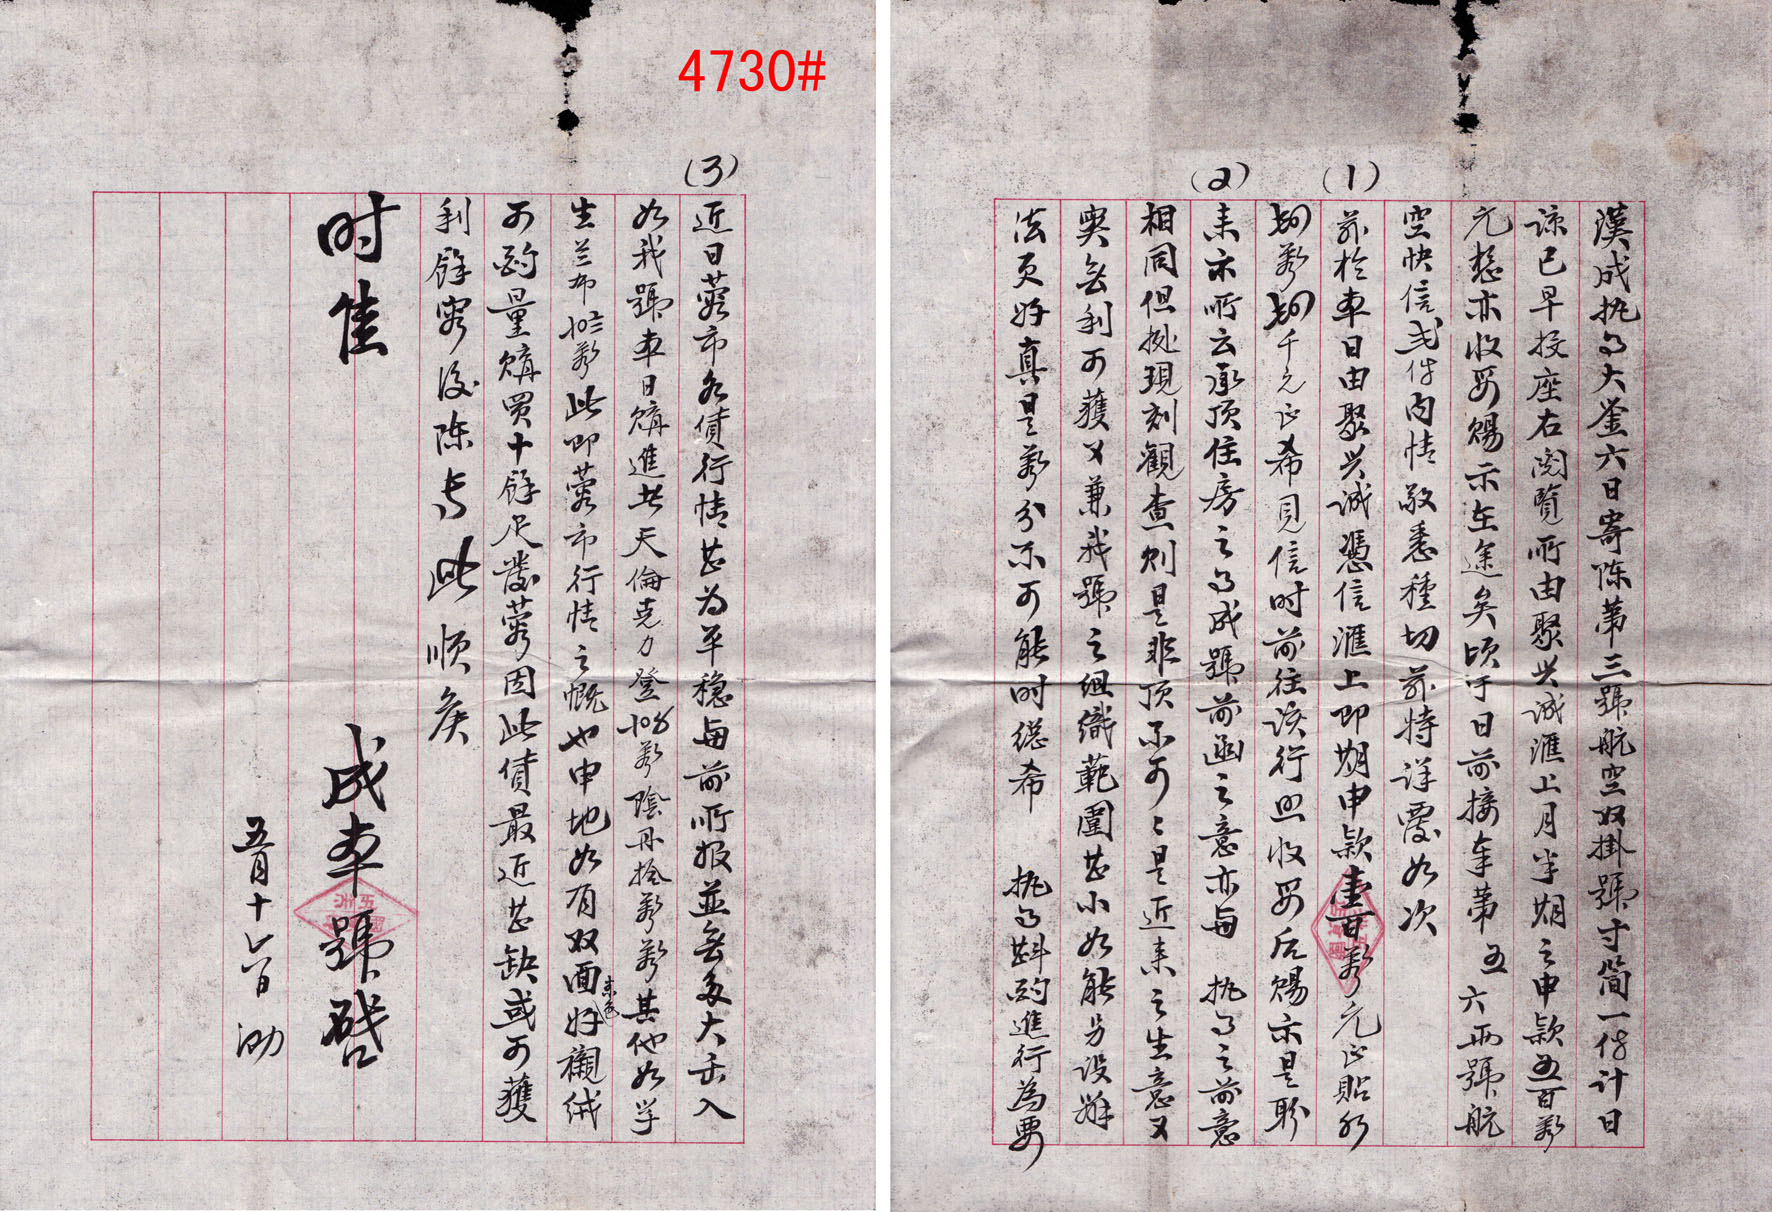 漢成执事大鉴六日寄陈第三號航空双掛號寸简一件计日
谅已早投座右阅覽所由聚兴诚滙上月半期之申款五百萬
元想亦收妥赐示在途矣顷于日前接奉第五六两號航
空快信弍件内情敬悉種切兹特详覆如次
(1)
兹於本日由聚兴诚憑信滙上即期申款壹百萬元正貼水
萬 千元正希見信时前往该行照收妥后赐示是盼
(2)
来示所云承顶住房之事成號前函之意亦与 执事之前意
相同但拠現刻觀查则是非顶不可:是近来之生意又
奥無利可獲又兼我號之组織範圍甚小如能另设辦
法更好真是萬分不可能时總希 执事斟酌進行為要
(3)
近日蓉市各债行情甚为平稳与前所报並無多大壬入
如我號本日購進共天倫克力登108萬陰丹拾萬萬其他如学
生兰布103萬此即蓉市行情之慨也申地如有双面好襯绒
素色
可酌量購買十餘尺發蓉因此债最近甚缺或可獲
利餘容後陈专此顺矦
时佳
成車號啓
五月十六日泐
4730#